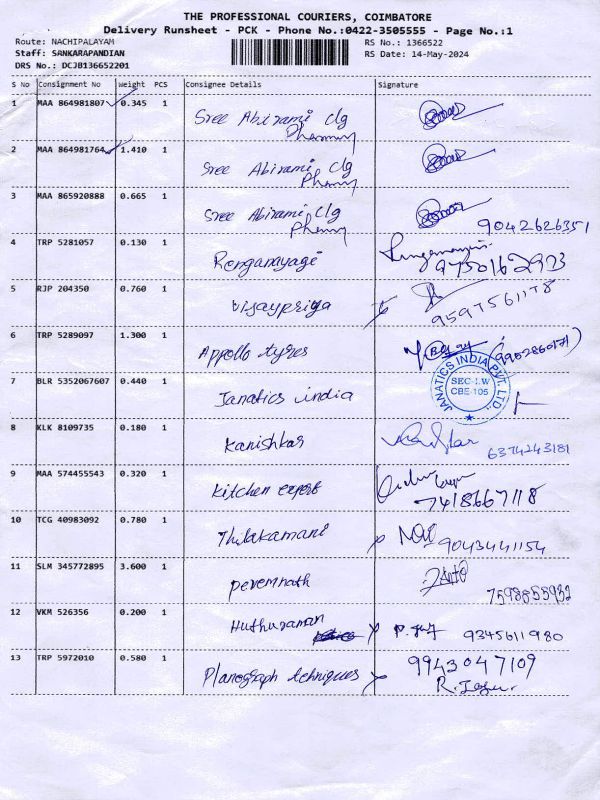 THE PROFESSIONAL COURIERS, COIMBATORE
Delivery Runsheet - PCK - Phone No.:0422-3505555 - Page No.:1
Route: NACHIPALAYAM RS No.: 1366522
Staff: SANKARAPANDIAN RS Date: 14-May-2024
DRS No.: DCJB136652201
S No Consignment No Weight PCS Consignee Details Signature
1 MAA 864981807 0.345 1 Sree Abirami clg
Pharmacy
2 MAA 864981764 1.410 1 Sree Abirami clg
Pharmy
3 MAA 865920888 0.665 1 Sree Abirami clg
Pharmy 9042626351
4 TRP 5281057 0.130 1 Renganayagi
9750162923
5 RJP 204350 0.760 1 Vijaypriya
9597561178
6 TRP 5289097 1.300 1 Appollo tyres (9952860171)
7 BLR 5352067607 0.440 1 Janatics india
JANATICS INDIA PVT. LTD.
SEC-I.W
CBE-105
8 KLK 8109735 0.180 1 Kanishkar 6374243181
9 MAA 574455543 0.320 1 Kitchen expert
7418667118
10 TCG 40983092 0.780 1 Thilakamani
9043441154
11 SLM 345772895 3.600 1 Pevemnath
7598855932
12 VKM 526356 0.200 1 Muthuraman
9345611980
13 TRP 5972010 0.580 1 Planograph techniques 9943047109